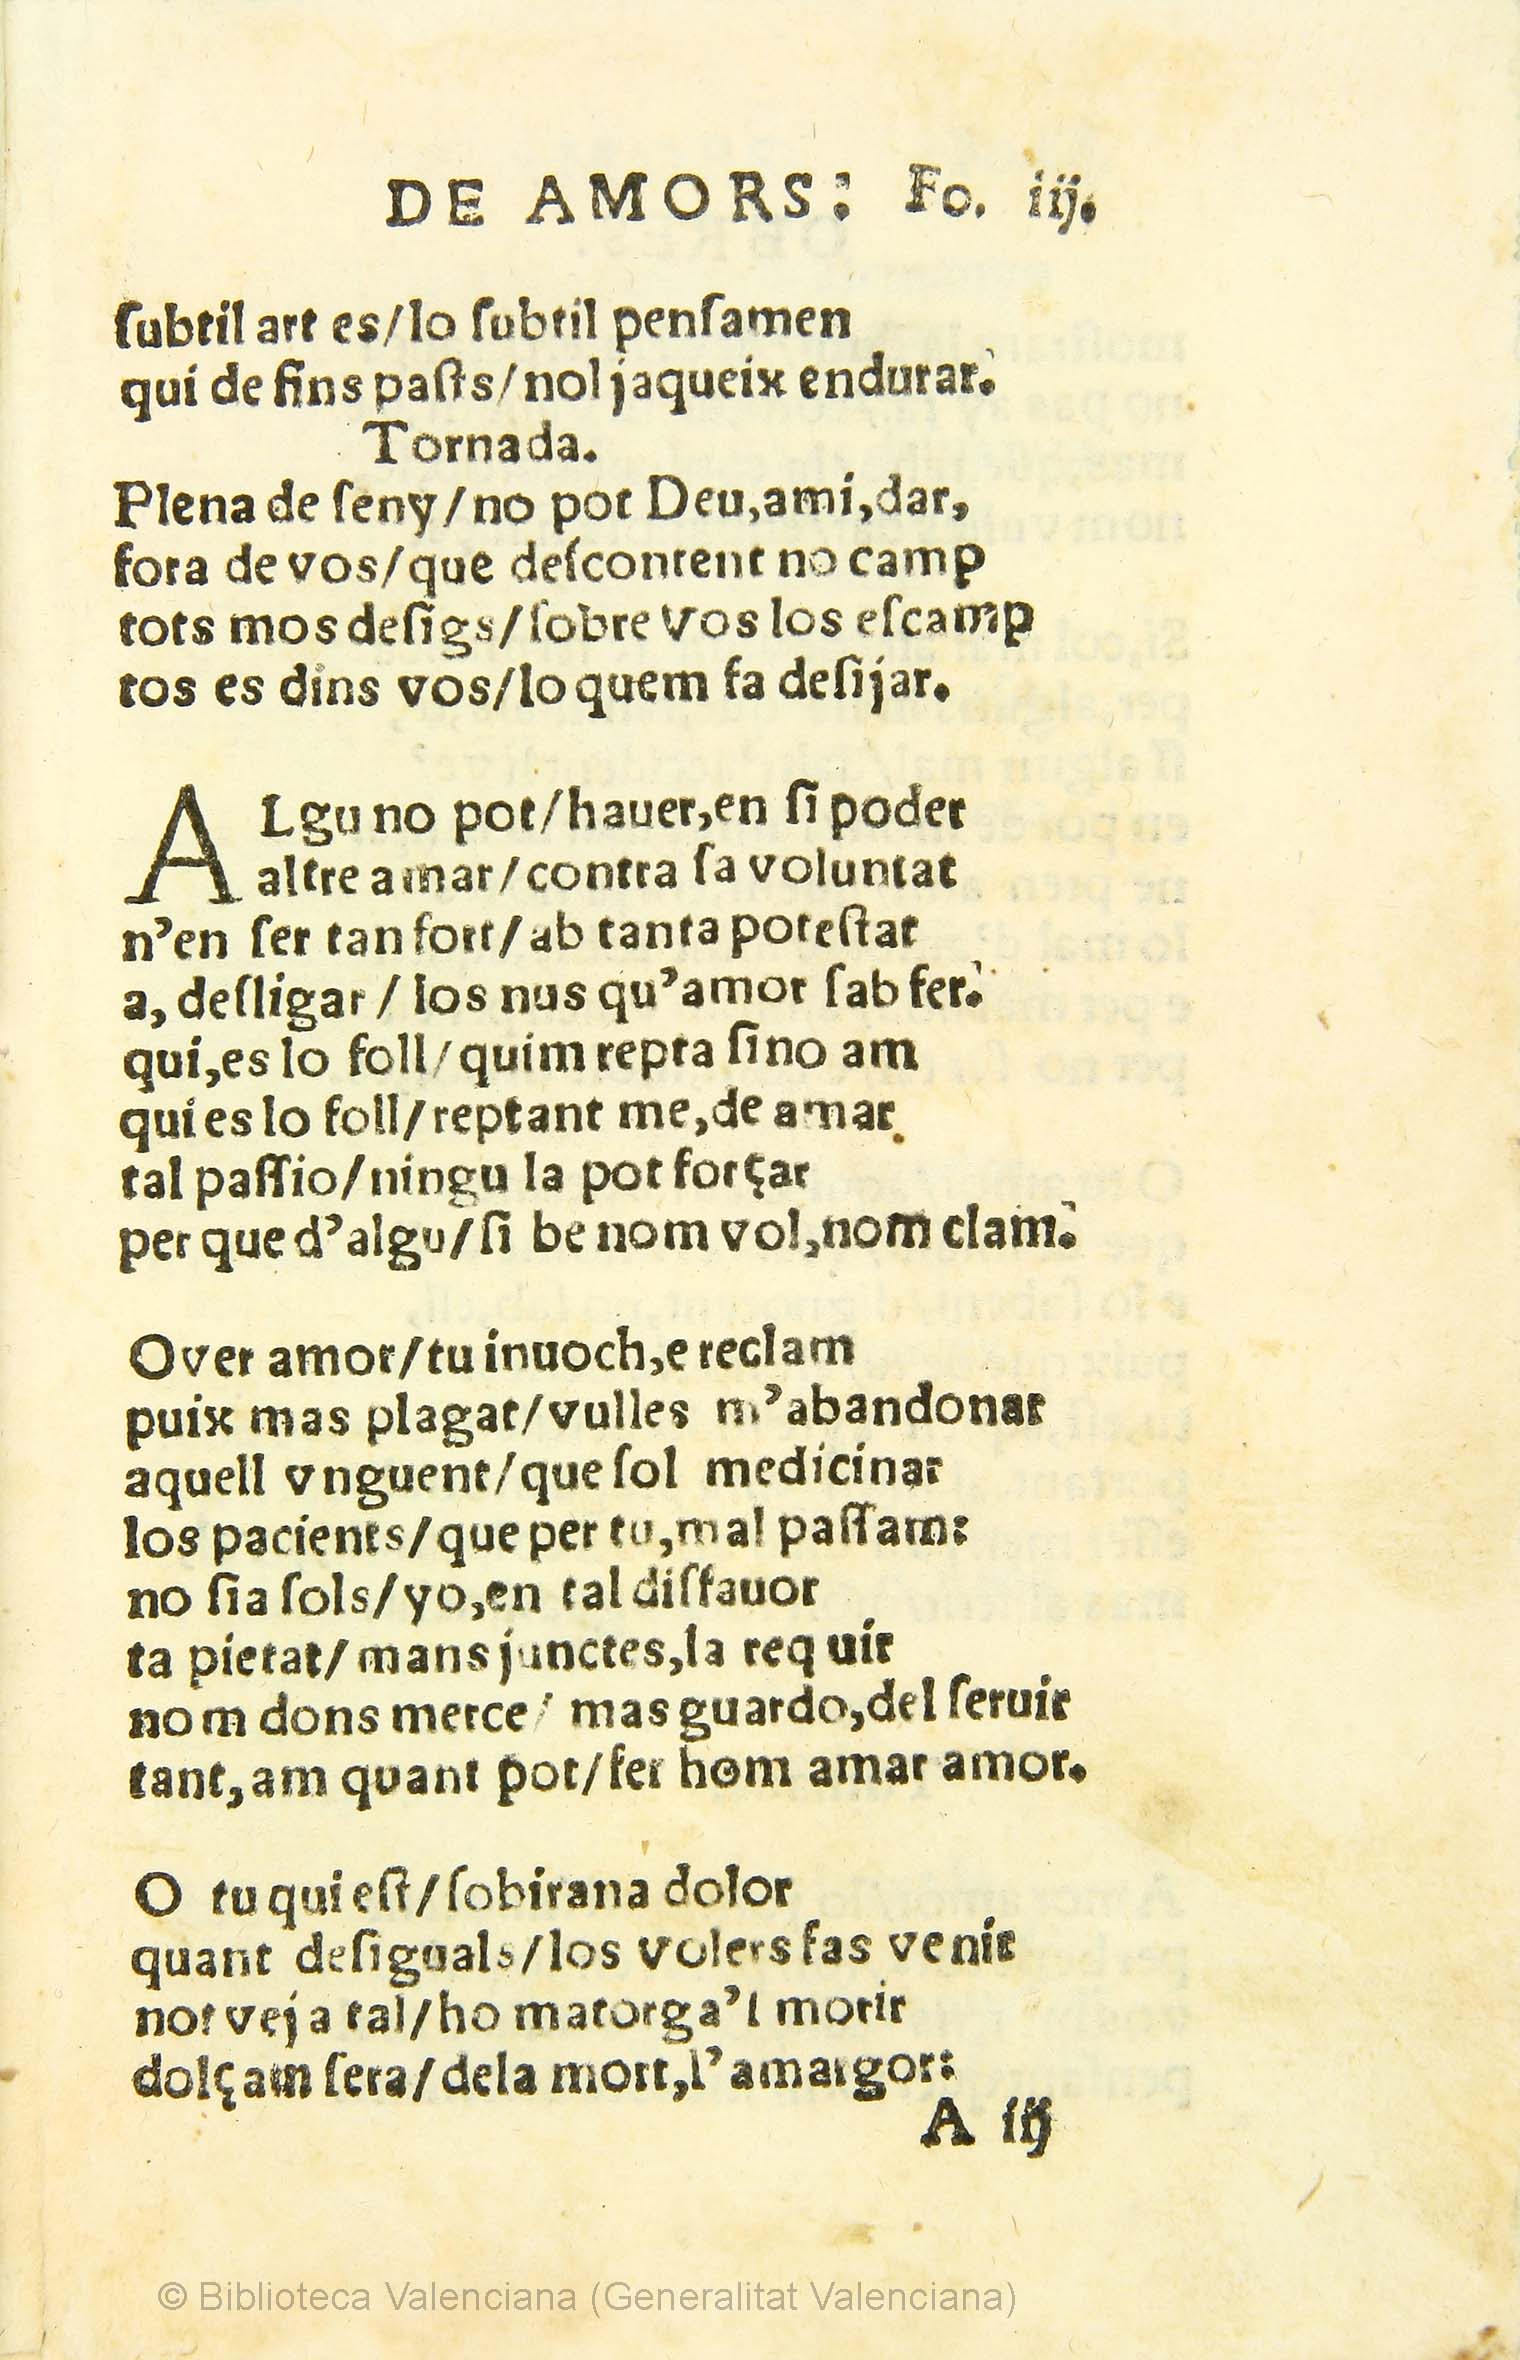 DE AMORS: Fo. iij.
ſubtil art es/lo ſubtil penſamen
qui de fins paſts/nol jaqueix endurar.
Tornada.
Plena de ſeny/no pot Deu,ami,dar,
fora de vos/que deſcontent no camp
tots mos deſigs/ſobre vos los eſcamp
tos es dins vos/lo quem fa deſijar.
ALgu no pot/hauer,en ſi poder
altre amar/contra ſa voluntat
n'en ſer tan fort/ab tanta poteſtat
a, deſligar/ los nus qu'amor ſab fer.
qui,es lo foll/quim repta ſino am
qui es lo foll/reptant me,de amar
tal paſſio/ningu la pot forçar
per que d'algu/ſi be nom vol,nom clam.
Over amor/tu inuoch,e reclam
puix mas plagat/vulles m'abandonar
aquell vnguent/que ſol medicinar
los pacients/que per tu,mal paſſam:
no ſia ſols/yo,en tal diſfauor
ta pietat/mans junctes,la requir
nom dons merce/ mas guardo,del ſeruir
tant,am quant pot/fer hom amar amor.
O tu qui eſt/ſobirana dolor
quant deſiguals/los volers fas venir
not veja tal/ho matorga'l morir
dolçam ſera/dela mort,l'amargor:
A iij
© Biblioteca Valenciana (Generalitat Valenciana)